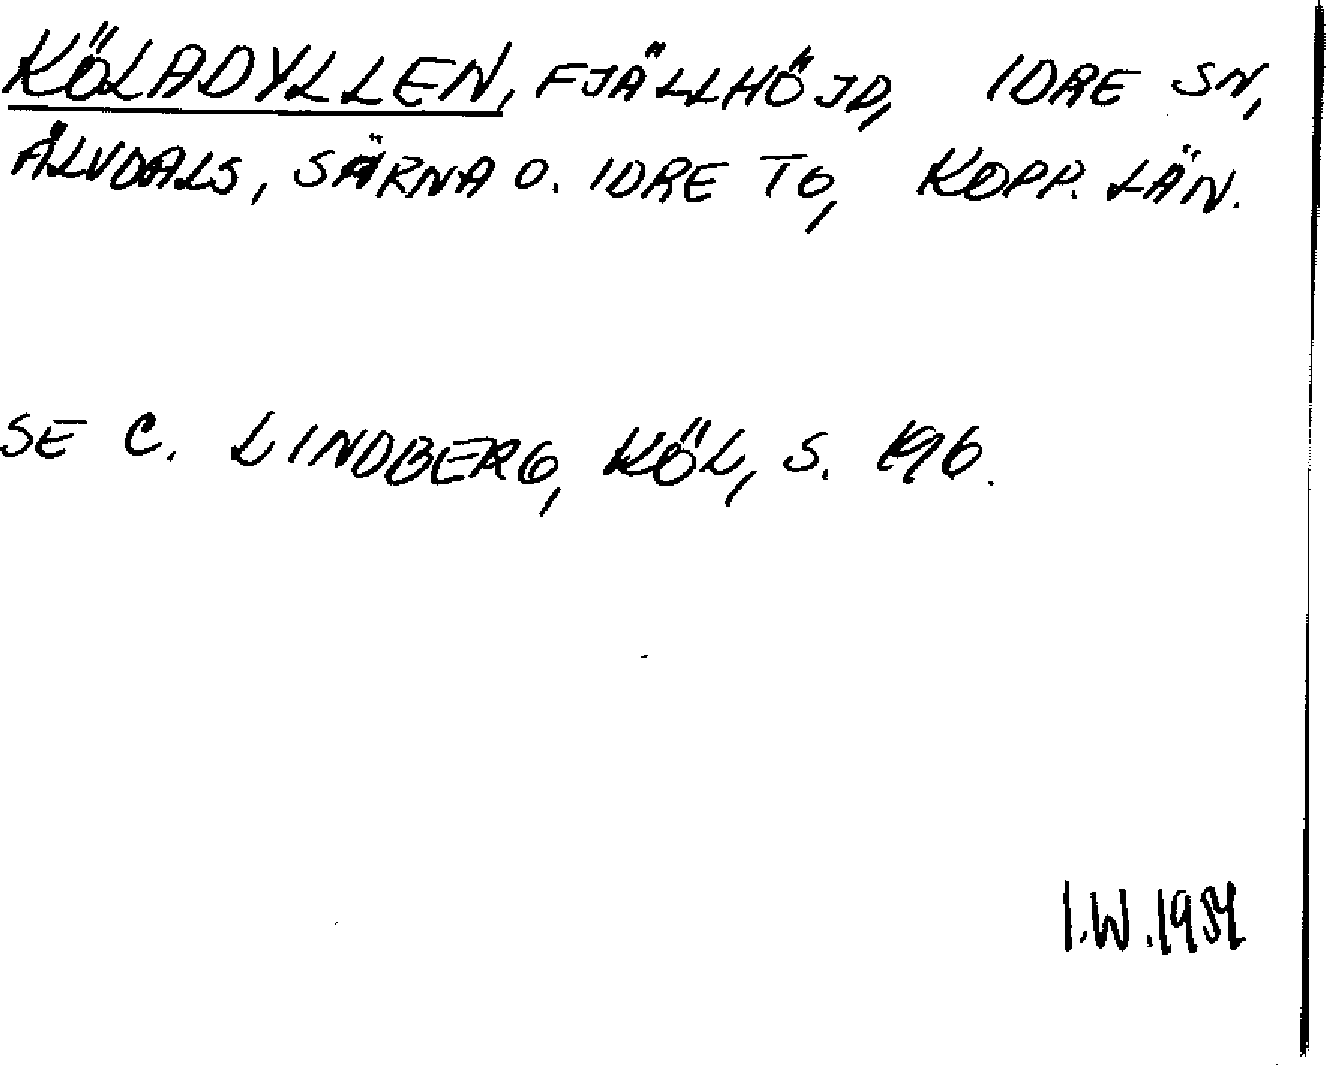 KÖLADYLLEN, FJÄLLHÖJD, IDRE SN,
ÄLVDALS, SÄRNA O. IDRE TG, KOPP. LÄN.
SE C. LINDBERG, KÖL, S. 196.
I.W. 1984